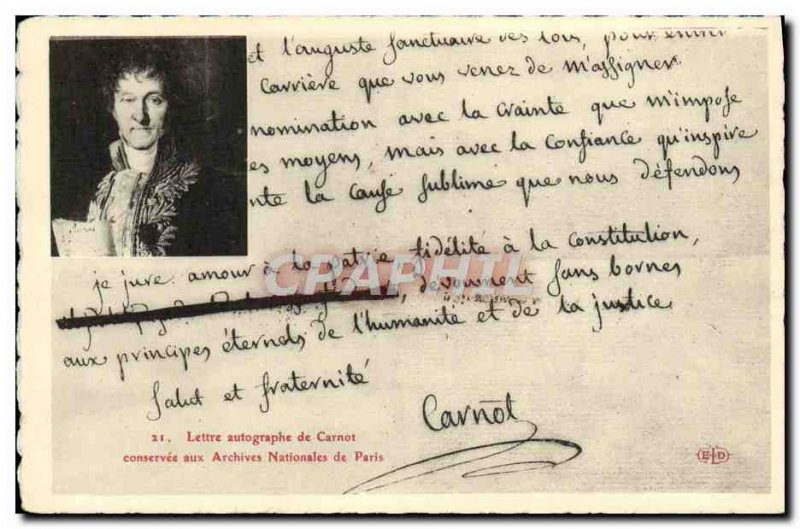 et l'auguste sanctuaire des lois, pour
carrière que vous venez de m'assigner
nomination avec la crainte que m'impose
es moyens, mais avec la confiance qu'inspire
nte la cause sublime que nous défendons
je jure amour à la patrie fidélité à la constitution,
, devoument sans bornes
aux principes éternels de l'humanité et de la justice
Salut et fraternité
Carnot
21. Lettre autographe de Carnot
conservée aux Archives Nationales de Paris
ELD
CPAPHIL